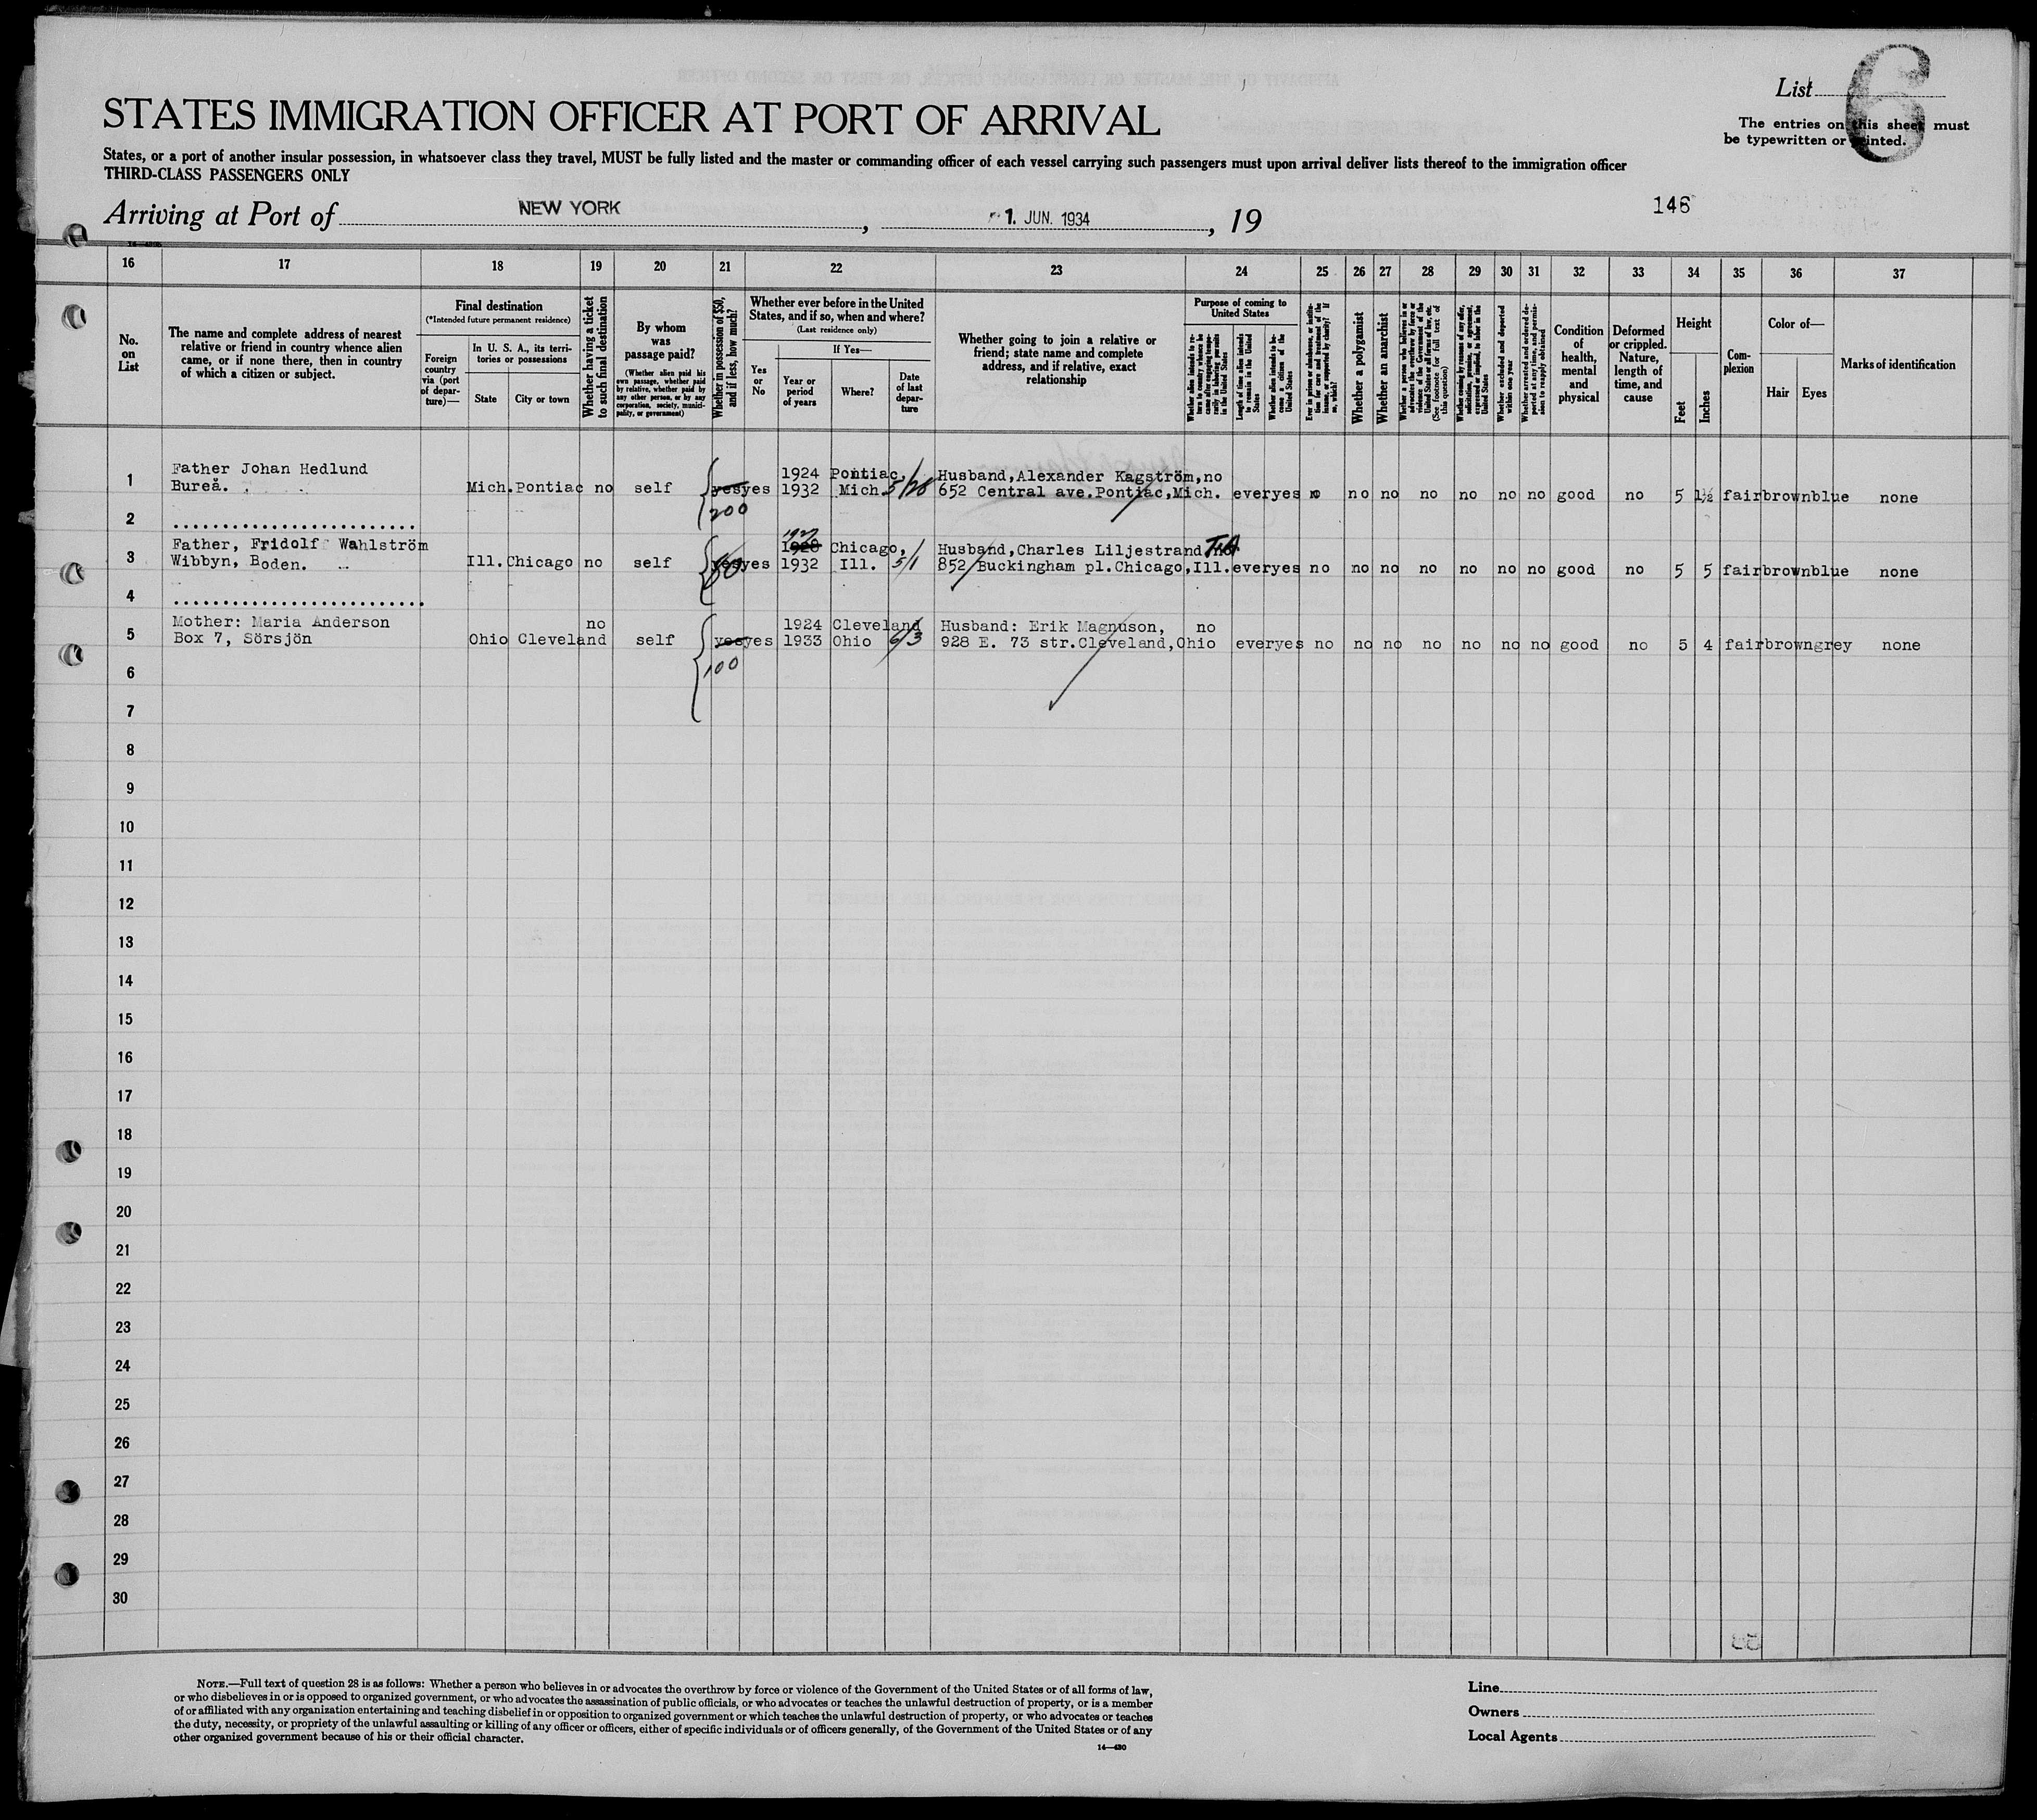 List 6
STATES IMMIGRATION OFFICER AT PORT OF ARRIVAL
The entries on this sheet must
be typewritten or printed.
States, or a port of another insular possession, in whatsoever class they travel, MUST be fully listed and the master or commanding officer of each vessel carrying such passengers must upon arrival deliver lists thereof to the immigration officer
THIRD-CLASS PASSENGERS ONLY
Arriving at Port of NEW YORK, 1. JUN. 1934, 19
146
16 17 18 19 20 21 22 23 24 25 26 27 28 29 30 31 32 33 34 35 36 37
No.
on
List
The name and complete address of nearest
relative or friend in country whence alien
came, or if none there, then in country
of which a citizen or subject.
Final destination
(*Intended future permanent residence)
Foreign
country
via (port
of depar-
ture)—
In U. S. A., its terri-
tories or possessions
State
City or town
Whether having a ticket
to such final destination
By whom
was
passage paid?
(Whether alien paid his
own passage, whether paid
by relative, whether paid by
any other person, or by any
corporation, society, munici-
pality, or government)
Whether in possession of $50,
and if less, how much?
Whether ever before in the United
States, and if so, when and where?
(Last residence only)
Yes
or
No
If Yes—
Year or
period
of years
Where?
Date
of last
depar-
ture
Whether going to join a relative or
friend; state name and complete
address, and if relative, exact
relationship
Purpose of coming to
United States
Whether alien intends to re-
turn to country whence he
came after engaging tempo-
rarily in laboring pursuits
in the United States
Length of time alien intends
to remain in the United
States
Whether alien intends to be-
come a citizen of the
United States
Ever in prison or almshouse, or institu-
tion for care and treatment of the
insane, or supported by charity? If
so, which?
Whether a polygamist
Whether an anarchist
Whether a person who believes in or
advocates the overthrow by force or
violence of the Government of the
United States or all forms of law, etc.
(See footnote for full text of
this question)
Whether coming by reason of any offer,
solicitation, promise, or agreement,
expressed or implied, to labor in the
United States
Whether excluded and deported
within one year
Whether arrested and ordered de-
ported at any time, and permis-
sion to reapply obtained
Condition
of
health,
mental
and
physical
Deformed
or crippled.
Nature,
length of
time, and
cause
Height
Feet
Inches
Com-
plexion
Color of—
Hair
Eyes
Marks of identification
Father Johan Hedlund 1924 Pontiac, Husband, Alexander Kagström, no
1 Bureå. Mich. Pontiac no self yes yes 1932 Mich. 5/28 652 Central ave. Pontiac, Mich. ever yes no no no no no no no good no 5 1½ fair brown blue none
200
2
1927
Father, Fridolf Wahlström 1928 Chicago, Husband, Charles Liljestrand
3 Wibbyn, Boden. Ill. Chicago no self yes 80 yes 1932 Ill. 5/1 852 Buckingham pl. Chicago, Ill. ever yes no no no no no no no good no 5 5 fair brown blue none
4
Mother: Maria Anderson no 1924 Cleveland Husband: Erik Magnuson, no
5 Box 7, Sörsjön Ohio Cleveland self yes yes 1933 Ohio 6/3 928 E. 73 str. Cleveland, Ohio ever yes no no no no no no no good no 5 4 fair brown grey none
100
6
7
8
9
10
11
12
13
14
15
16
17
18
19
20
21
22
23
24
25
26
27
28
29
30
NOTE.—Full text of question 28 is as follows: Whether a person who believes in or advocates the overthrow by force or violence of the Government of the United States or of all forms of law,
or who disbelieves in or is opposed to organized government, or who advocates the assassination of public officials, or who advocates or teaches the unlawful destruction of property, or is a member
of or affiliated with any organization entertaining and teaching disbelief in or opposition to organized government or which teaches the unlawful destruction of property, or who advocates or teaches
the duty, necessity, or propriety of the unlawful assaulting or killing of any officer or officers, either of specific individuals or of officers generally, of the Government of the United States or of any
other organized government because of his or their official character.
14—430
Line
Owners
Local Agents